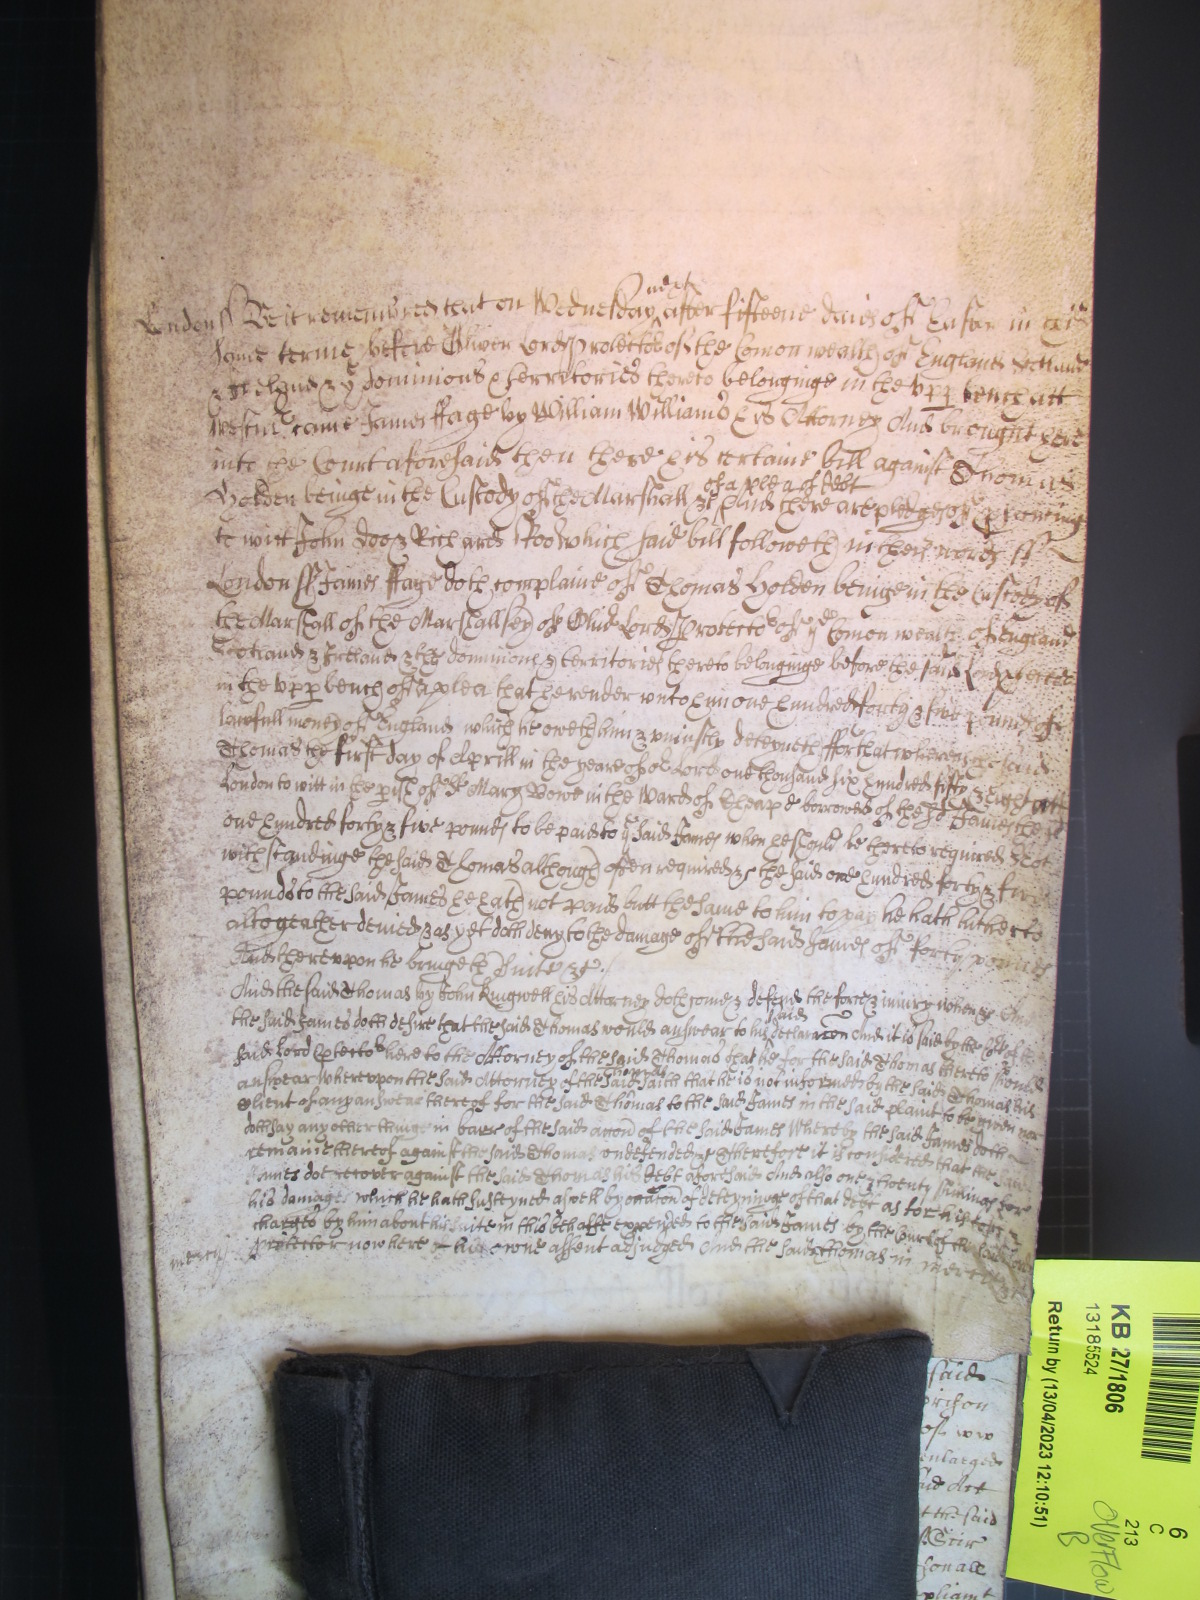 next
London ss Be it remembred that on Wednesday after fifteene daies of Easter in this
same terme before Oliver Lord Protector of the Comon wealth of England Scotland
& Ireland & ye dominions & territories thereto belonginge in the upp bench att
Westmr came James ffage by William Williams his Attorney And brought here
into the Court aforesaid then there his certaine bill against Thomas
of a plea of debt
Holden beinge in the Custody of the Marshall &c And there are pledges of prosecuting
to witt John Doo & Richard Roo which said bill followeth in these words ss
London ss James ffage doth complaine of Thomas Holden beinge in the Custody of
the Marshall of the Marshallsey of Oliver Lord Protector of ye Comon wealth of England
Scotland & Ireland & the dominions & territories thereto belonginge before the said Lord Protector
in the upp bench of a plea that he render unto him one hundred forty & five pounds of
lawfull money of England which he oweth him & uniustly deteyneth ffor that whereas the said
Thomas the first day of Aprill in the yeare of or Lord one thousand six hundred fifty & eight att
London to witt in the pish of St Mary Bowe in the Ward of Cheap borrowed of the sd James the sd
one hundred forty & five pounds to be paid to ye said James when he should be thereto required & Not
withstandinge the said Thomas although often required &c the said one hundred forty & five
pounds to the said James he hath not paid butt the same to him to pay he hath hitherto
altogeather denied & as yet doth deny to the damage of the said James of forty pounds
And thereupon he bringeth suite &c
And the said Thomas by John Ringwell his Attorney doth come & defend the force & iniury when &c And
said
the said James doth desire that the said Thomas would answear to his declaracon And it is said by the Court of the
said Lord Protector here to the Attorney of the said Thomas that he for the said Thomas thereto should
Thomas
answear Whereupon the said Attorney of the said saith that he is not informed by the said Thomas his
Client of any answear thereof for the said Thomas to the said James in the said plaint to be given nor
doth say any other thinge in barr of the said accon of the said James Whereby the said James doth
remaine thereof against the said Thomas undefended &c Therefore it is considered that the said
James doe recover against the said Thomas his debt aforesaid And also one & twenty shillings for
his damages which he hath susteyned aswell by occasion of deteyninge of that debt as for his costs &
charges by him about his suite in this behalfe expended to the said James by the Court of the said Lord
mercy Protector now here his owne assent adiudged And the said Thomas in mercy
&c
said
prison
of
enlarged
said Act
t the said
Scir
son all
KB 27/1806
13185524
Return by (13/04/2023 12:10:51)
6
C
213
Overflow
B